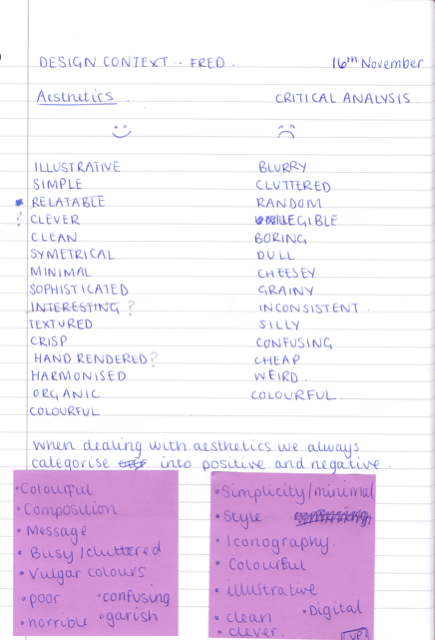 DESIGN CONTEXT - FRED.
16th November
Aesthetics
CRITICAL ANALYSIS.
ILLUSTRATIVE
SIMPLE
RELATABLE
? CLEVER
CLEAN
SYMETRICAL
MINIMAL
SOPHISTICATED
INTERESTING ?
TEXTURED
CRISP
HAND RENDERED?
HARMONISED
ORGANIC
COLOURFUL
BLURRY
CLUTTERED
RANDOM
ILLEGIBLE
BORING
DULL
CHEESEY
GRAINY
INCONSISTENT
SILLY
CONFUSING
CHEAP
WEIRD.
COLOURFUL.
when dealing with aesthetics we always
categorise into positive and negative.
• Colourful
• Composition
• Message
• Busy/cluttered
• Vulgar colours
• poor • confusing
• horrible • garish
• Simplicity/minimal
• Style
• Iconography
• Colourful
• illustrative
• Digital
• clean
• clever